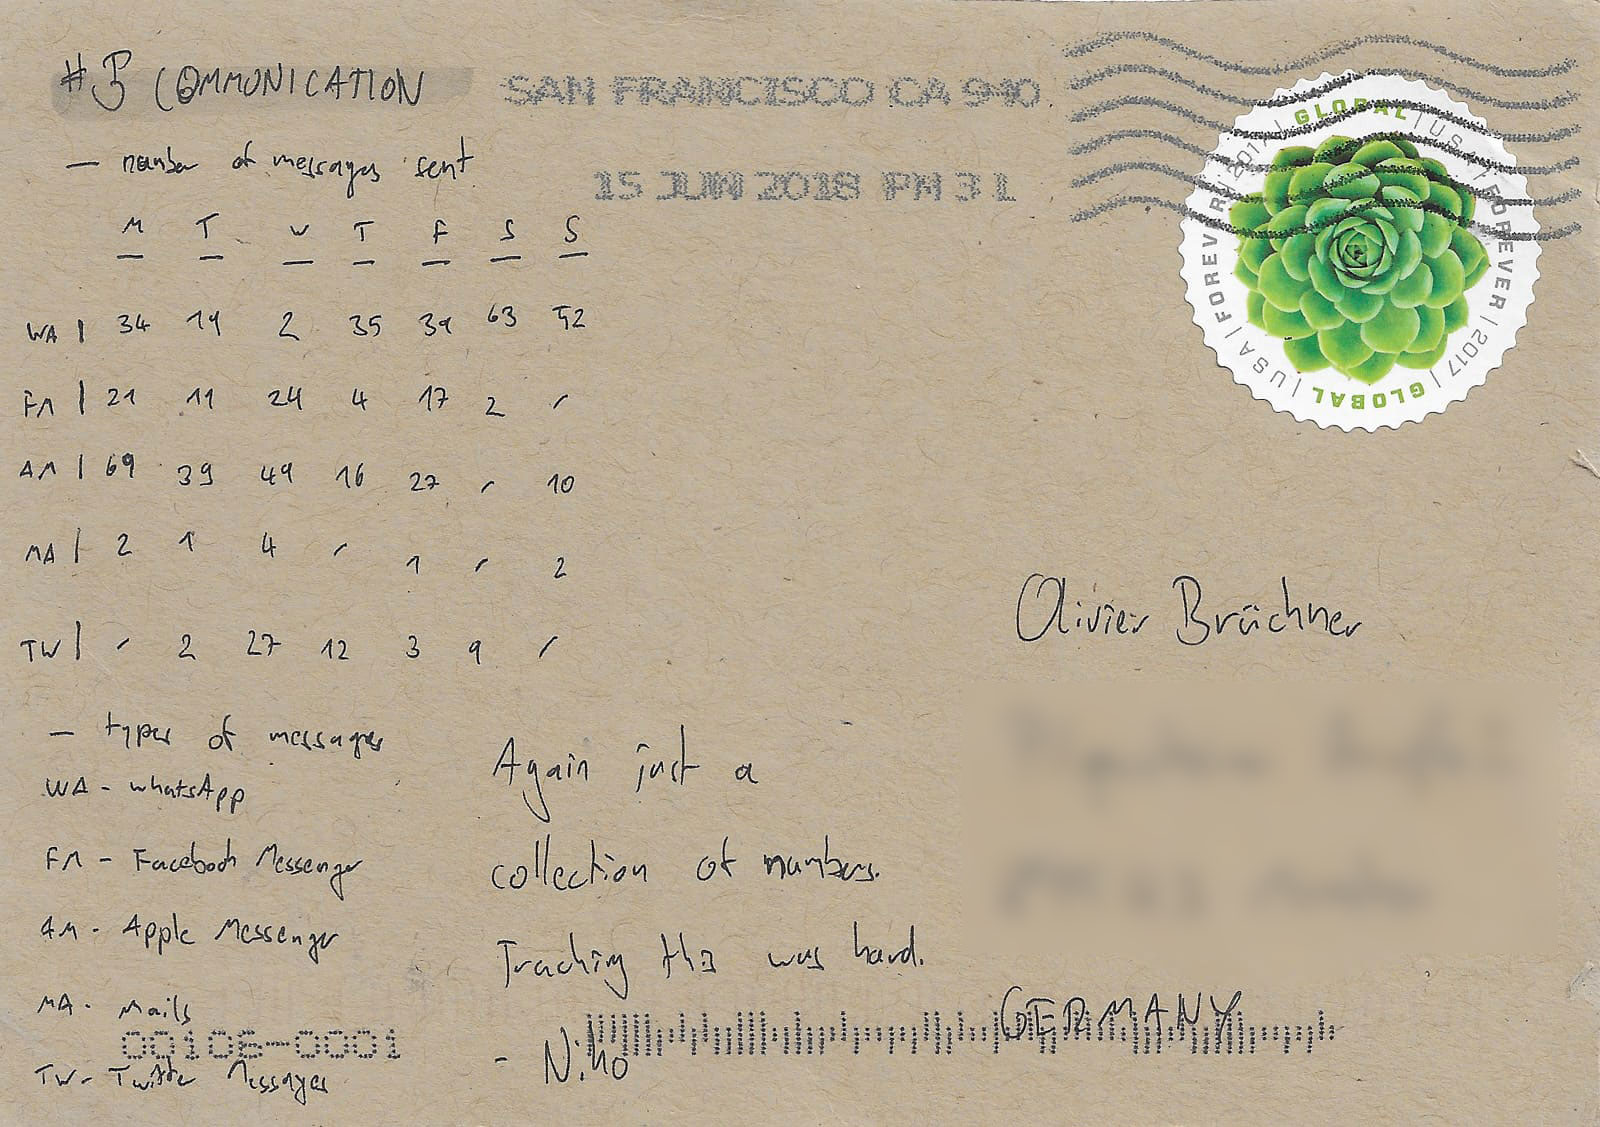 #5 COMMUNICATION
SAN FRANCISCO CA 940
15 JUN 2018 PM 3 L
GLOBAL | USA | FOREVER | 2017 | GLOBAL | USA | FOREVER | 2017 |
— number of messages sent
M T W T F S S
WA | 34 19 2 35 39 63 52
FM | 21 11 24 4 17 2 -
AM | 69 39 49 16 27 - 10
MA | 2 1 4 - 1 - 2
TW | - 2 27 12 3 9 -
— types of messages
WA - WhatsApp
FM - Facebook Messenger
AM - Apple Messenger
MA - Mails
TW - Twitter Messages
00106-0001
Again just a
collection of numbers.
Tracking this was hard.
- Niko
Olivier Brückner
GERMANY